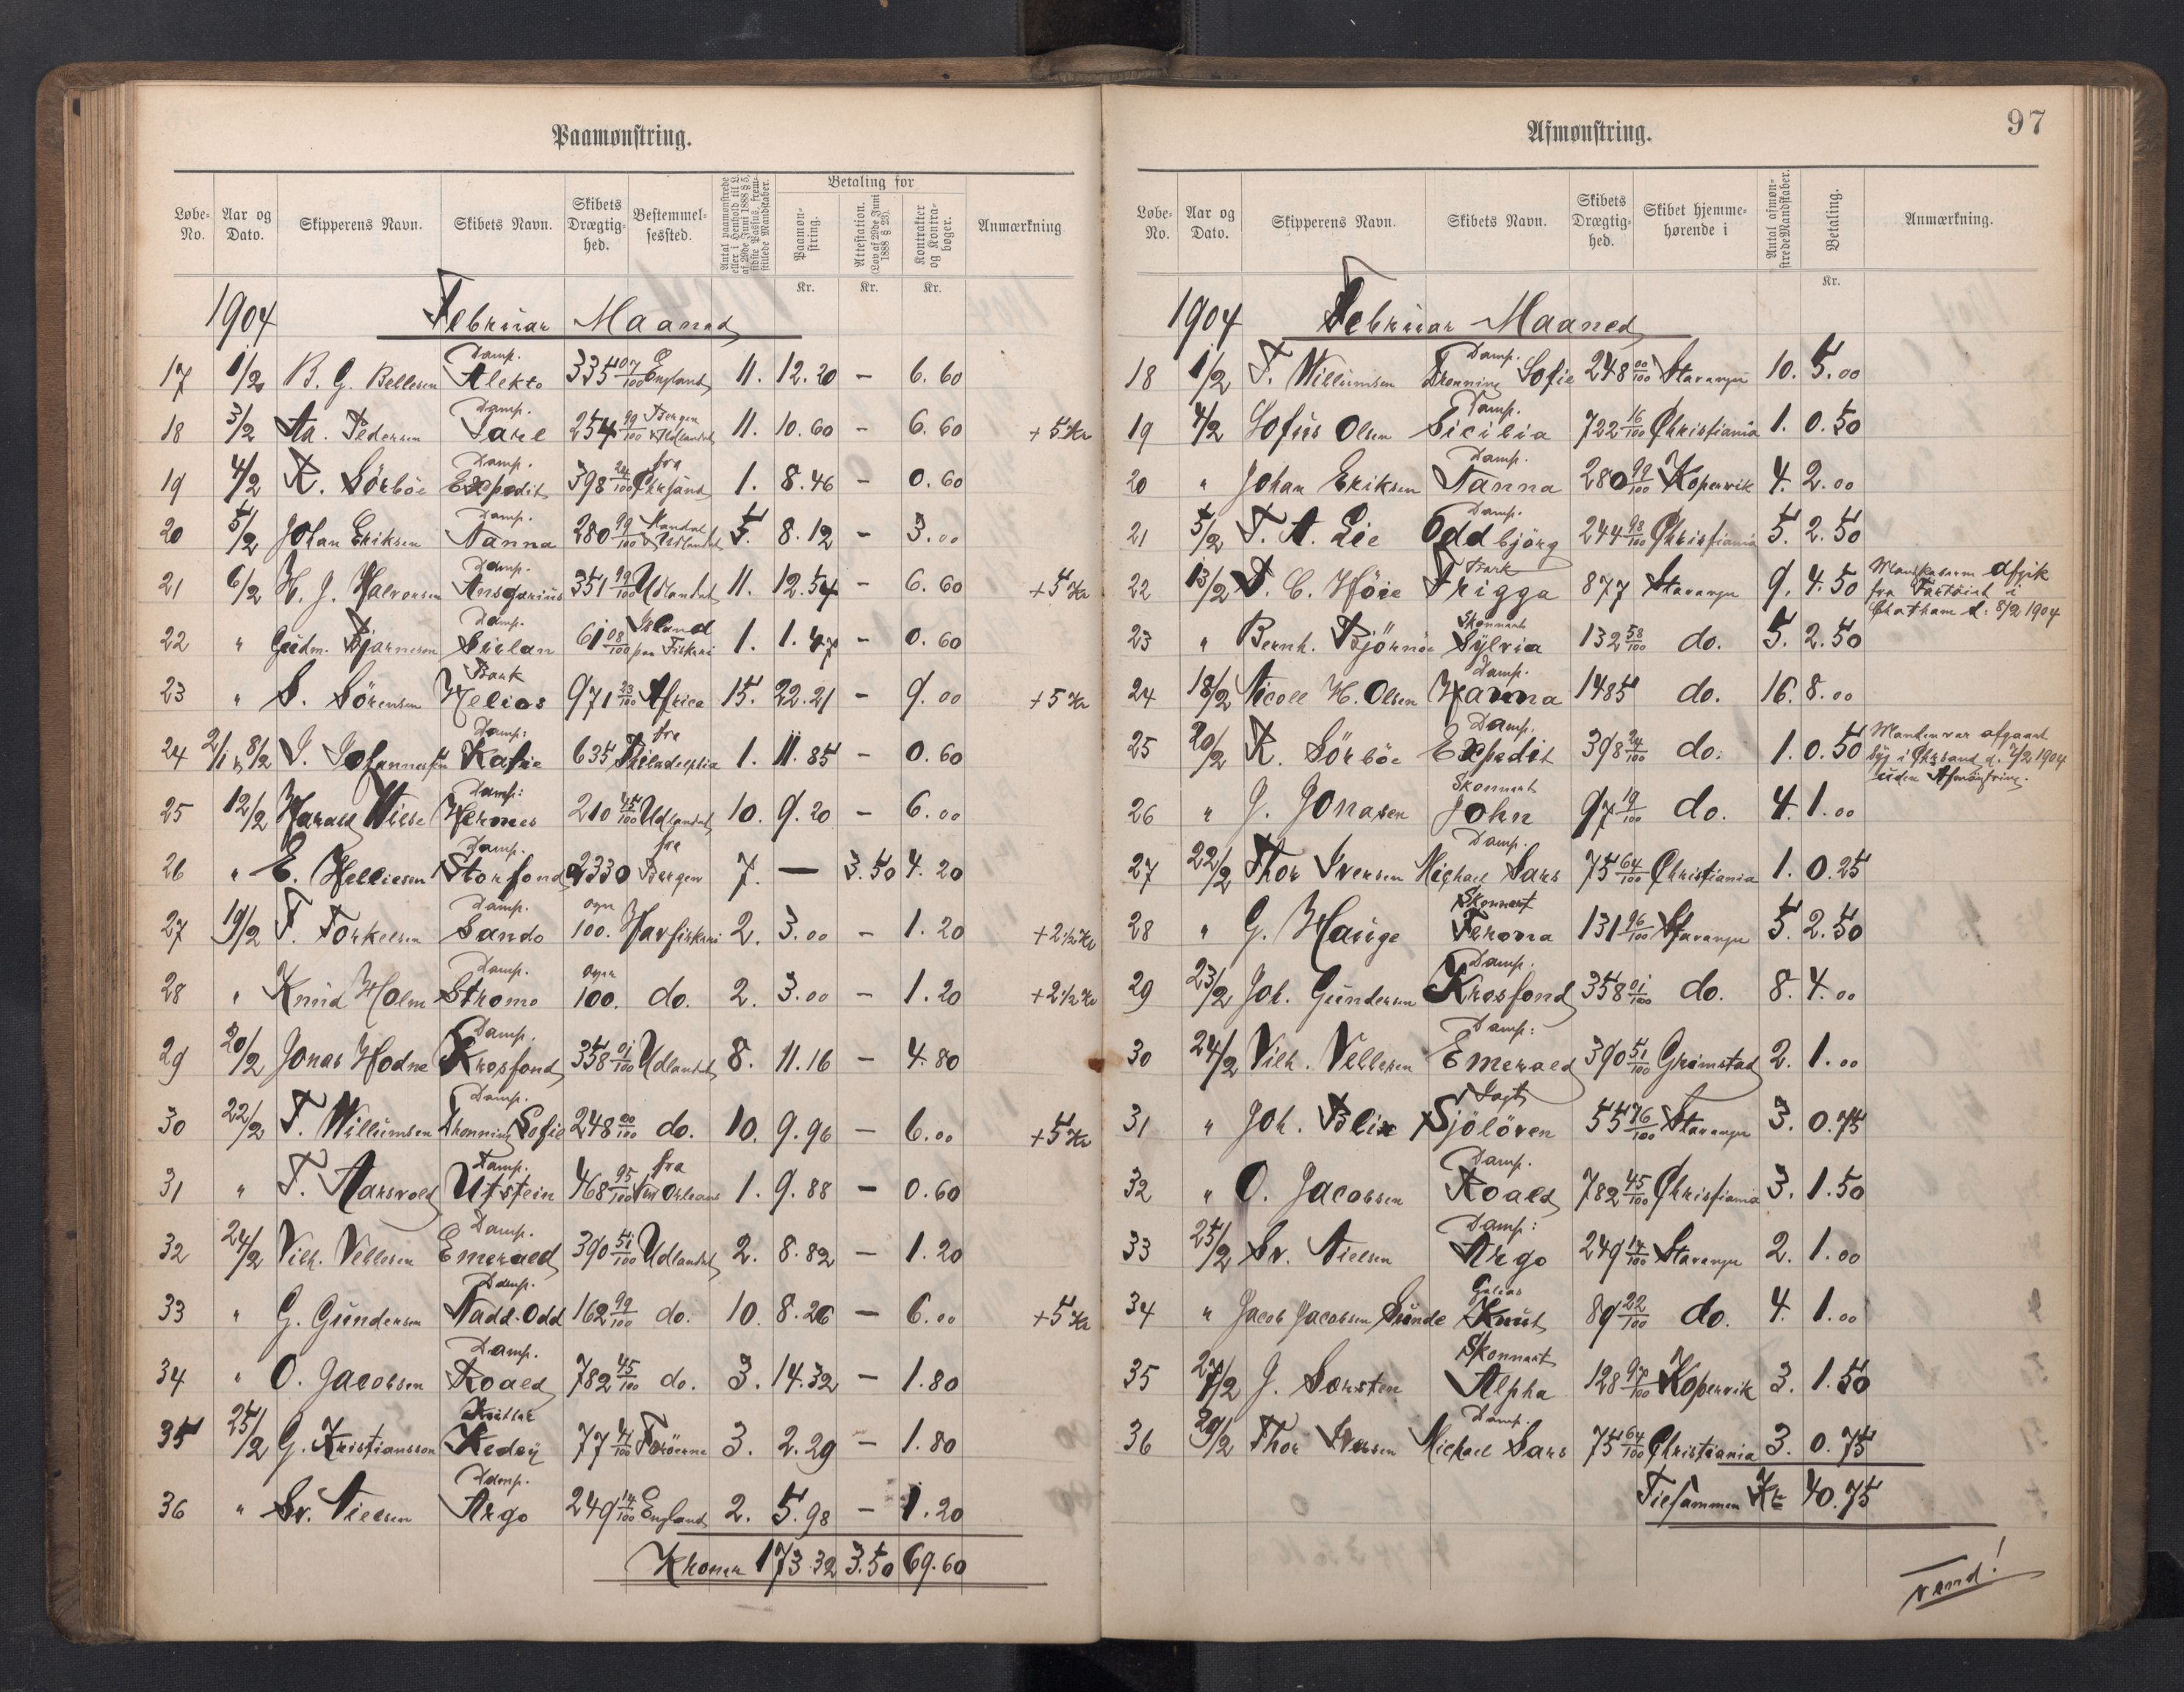 Paamønstring.
Løbe-No. Aar og Dato. Skipperens Navn. Skibets Navn. Skibets Drægtig-hed. Bestemmel-sessted. Antal paamønstrede eller i Henhold til L. af 29de Juni 1888 § 5, sidste Passus, frem-stillede Mandskaber. Betaling for Paamøn-string. Attestation. (Lov af 29de Juni 1888 § 23). Kontrakter og Kontra-bøger. Anmærkning
Kr. Kr. Kr.
1904 Februar Maaned
17 1/2 B. G. Bellesen Damp. Alekto 335 07/100 England 11. 12.20 – 6.60
18 3/2 Aa. Pedersen Damp. Jarl 254 99/100 Bergen & Udlandet 11. 10.60 – 6.60 +5 Kr
19 4/2 K. Sörböe Damp. Expedit 398 24/100 fra Chrsand 1. 8.46 – 0.60
20 5/2 Johan Eriksen Damp. Nanna 280 99/100 Mandal & Udlandet 5. 8.12 – 3.00
21 6/2 H. J. Halvorsen Damp. Ansgarius 351 99/100 Udlandet 11. 12.54 – 6.60 +5 Kr
22 " Gudm. Bjarneson Damp. Sirlan 61 08/100 Island paa Fiskeri 1. 1.47 – 0.60
23 " S. Sörensen Bark Helios 971 23/100 Africa 15. 22.21 – 9.00 +5 Kr
24 2/1 & 8/2 J. Johannessen Damp: Kasie 635 fra Philadelphia 1. 11.85 – 0.60
25 12/2 Harald Wisse Damp: Hermes 210 45/100 Udlandet 10. 9.20 – 6.00
26 " E. Helliesen Damp. Storfond 2330 fra Bergen 7. – 3.50 4.20
27 19/2 T. Torkelsen Damp. Sando 100. Havfiskeri 2. 3.00 – 1.20 +2 1/2 Kr
28 " Knud Holm Damp. Stromo 100. do. 2. 3.00 – 1.20 +2 1/2 Kr
29 20/2 Jonas Hodne Damp. Krosfond 358 01/100 Udlandet 8. 11.16 – 4.80
30 22/2 T. Willumsen Damp. Dronning Sofie 248 00/100 do. 10. 9.96 – 6.00 +5 Kr
31 " T. Aarsvold Damp. Utstein 468 95/100 fra New Orleans 1. 9.88 – 0.60
32 24/2 Vilh. Vellesen Damp. Emerald 390 51/100 Udlandet 2. 8.82 – 1.20
33 " G. Gundersen Damp. Nadd-Odd 162 99/100 do. 10. 8.26 – 6.00 +5 Kr
34 " O. Jacobsen Damp. Roald 782 45/100 do. 3. 14.32 – 1.80
35 25/2 G. Kristiansson Kutter Kedey 77 41/100 Færöerne 3. 2.29 – 1.80
36 " Sv. Nielsen Damp. Argo 249 14/100 England 2. 5.98 – 1.20
Kroner 173.32 3.50 69.60
97
Afmønstring.
Løbe-No. Aar og Dato. Skipperens Navn. Skibets Navn. Skibets Drægtig-hed. Skibet hjemme-hørende i Antal afmøn-strede Mandskaber. Betaling. Anmærkning.
Kr.
1904 Februar Maaned
18 1/2 T. Willumsen Damp. Dronning Sofie 248 00/100 Stavanger 10. 5.00
19 4/2 Sofus Olsen Damp. Sicilia 722 16/100 Christiania 1. 0.50
20 " Johan Eriksen Damp. Nanna 280 99/100 Kopervik 4. 2.00
21 5/2 T. A. Lie Damp. Oddbjörg 244 98/100 Christiania 5. 2.50
22 13/2 T. C. Höie Bark Frigga 877 Stavanger 9. 4.50 Mandskaberne afgik fra Fartöiet i Chatham d. 8/2 1904
23 " Bernh. Björnöe Skonnert Sylvia 132 58/100 do. 5. 2.50
24 18/2 Nicoll H. Olsen Damp. Hanna 1485 do. 16. 8.00
25 20/2 K. Sörböe Damp. Expedit 398 24/100 do. 1. 0.50 Manden var afgaaet syg i Chrsand d. 7/2 1904 uden Afmönstring.
26 " G. Jonasen Skonnert John 97 19/100 do. 4. 1.00
27 22/2 Thor Iversen Damp. Michael Sars 75 64/100 Christiania 1. 0.25
28 " G. Hauge Skonnert Ferona 131 96/100 Stavanger 5. 2.50
29 23/2 Joh. Gundersen Damp. Krosfond 358 01/100 do. 8. 4.00
30 24/2 Vilh. Vellesen Damp: Emerald 390 51/100 Grimstad 2. 1.00
31 " Joh. Blix Jagt Sjölöven 55 76/100 Stavanger 3. 0.75
32 " O. Jacobsen Damp. Roald 782 45/100 Christiania 3. 1.50
33 25/2 Sv. Nielsen Damp: Argo 249 14/100 Stavanger 2. 1.00
34 " Jacob Jacobsen Sunde Galeas Knut 89 22/100 do. 4. 1.00
35 27/2 J. Sorsten Skonnert Alpha 128 97/100 Kopervik 3. 1.50
36 29/2 Thor Iversen Damp. Michael Sars 75 64/100 Christiania 3. 0.75
Tilsammen Kr 40.75
vend!